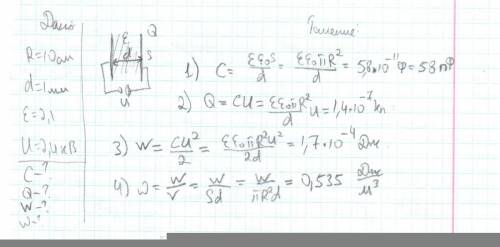 Дано
R=10см
d=1мм
ε=2,1
U=2,4кВ
C-?
Q-?
W-?
w-?
ε Q
d S
U
Решение:
1) C = εε₀S/d = εε₀πR²/d = 5,8·10⁻¹¹ Ф = 58 пФ
2) Q = CU = εε₀πR²/d U = 1,4·10⁻⁷ Кл
3) W = CU²/2 = εε₀πR²U²/2d = 1,7·10⁻⁴ Дж
4) w = W/V = W/Sd = W/πR²d = 0,535 Дж/м³